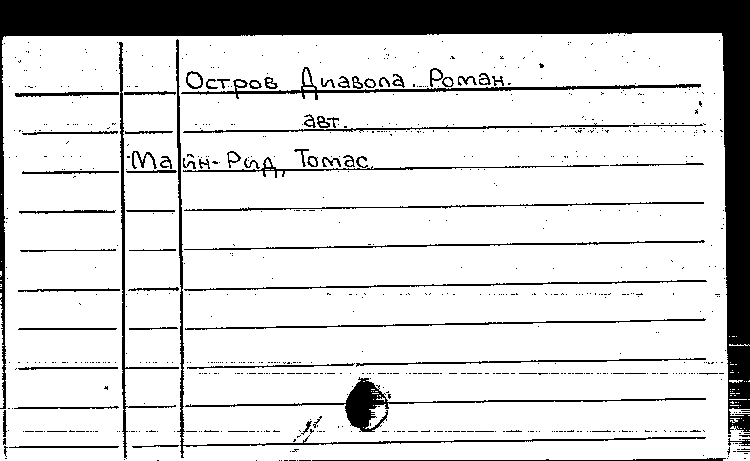 Остров Диавола. Роман.
авт.
Майн-Рид, Томас